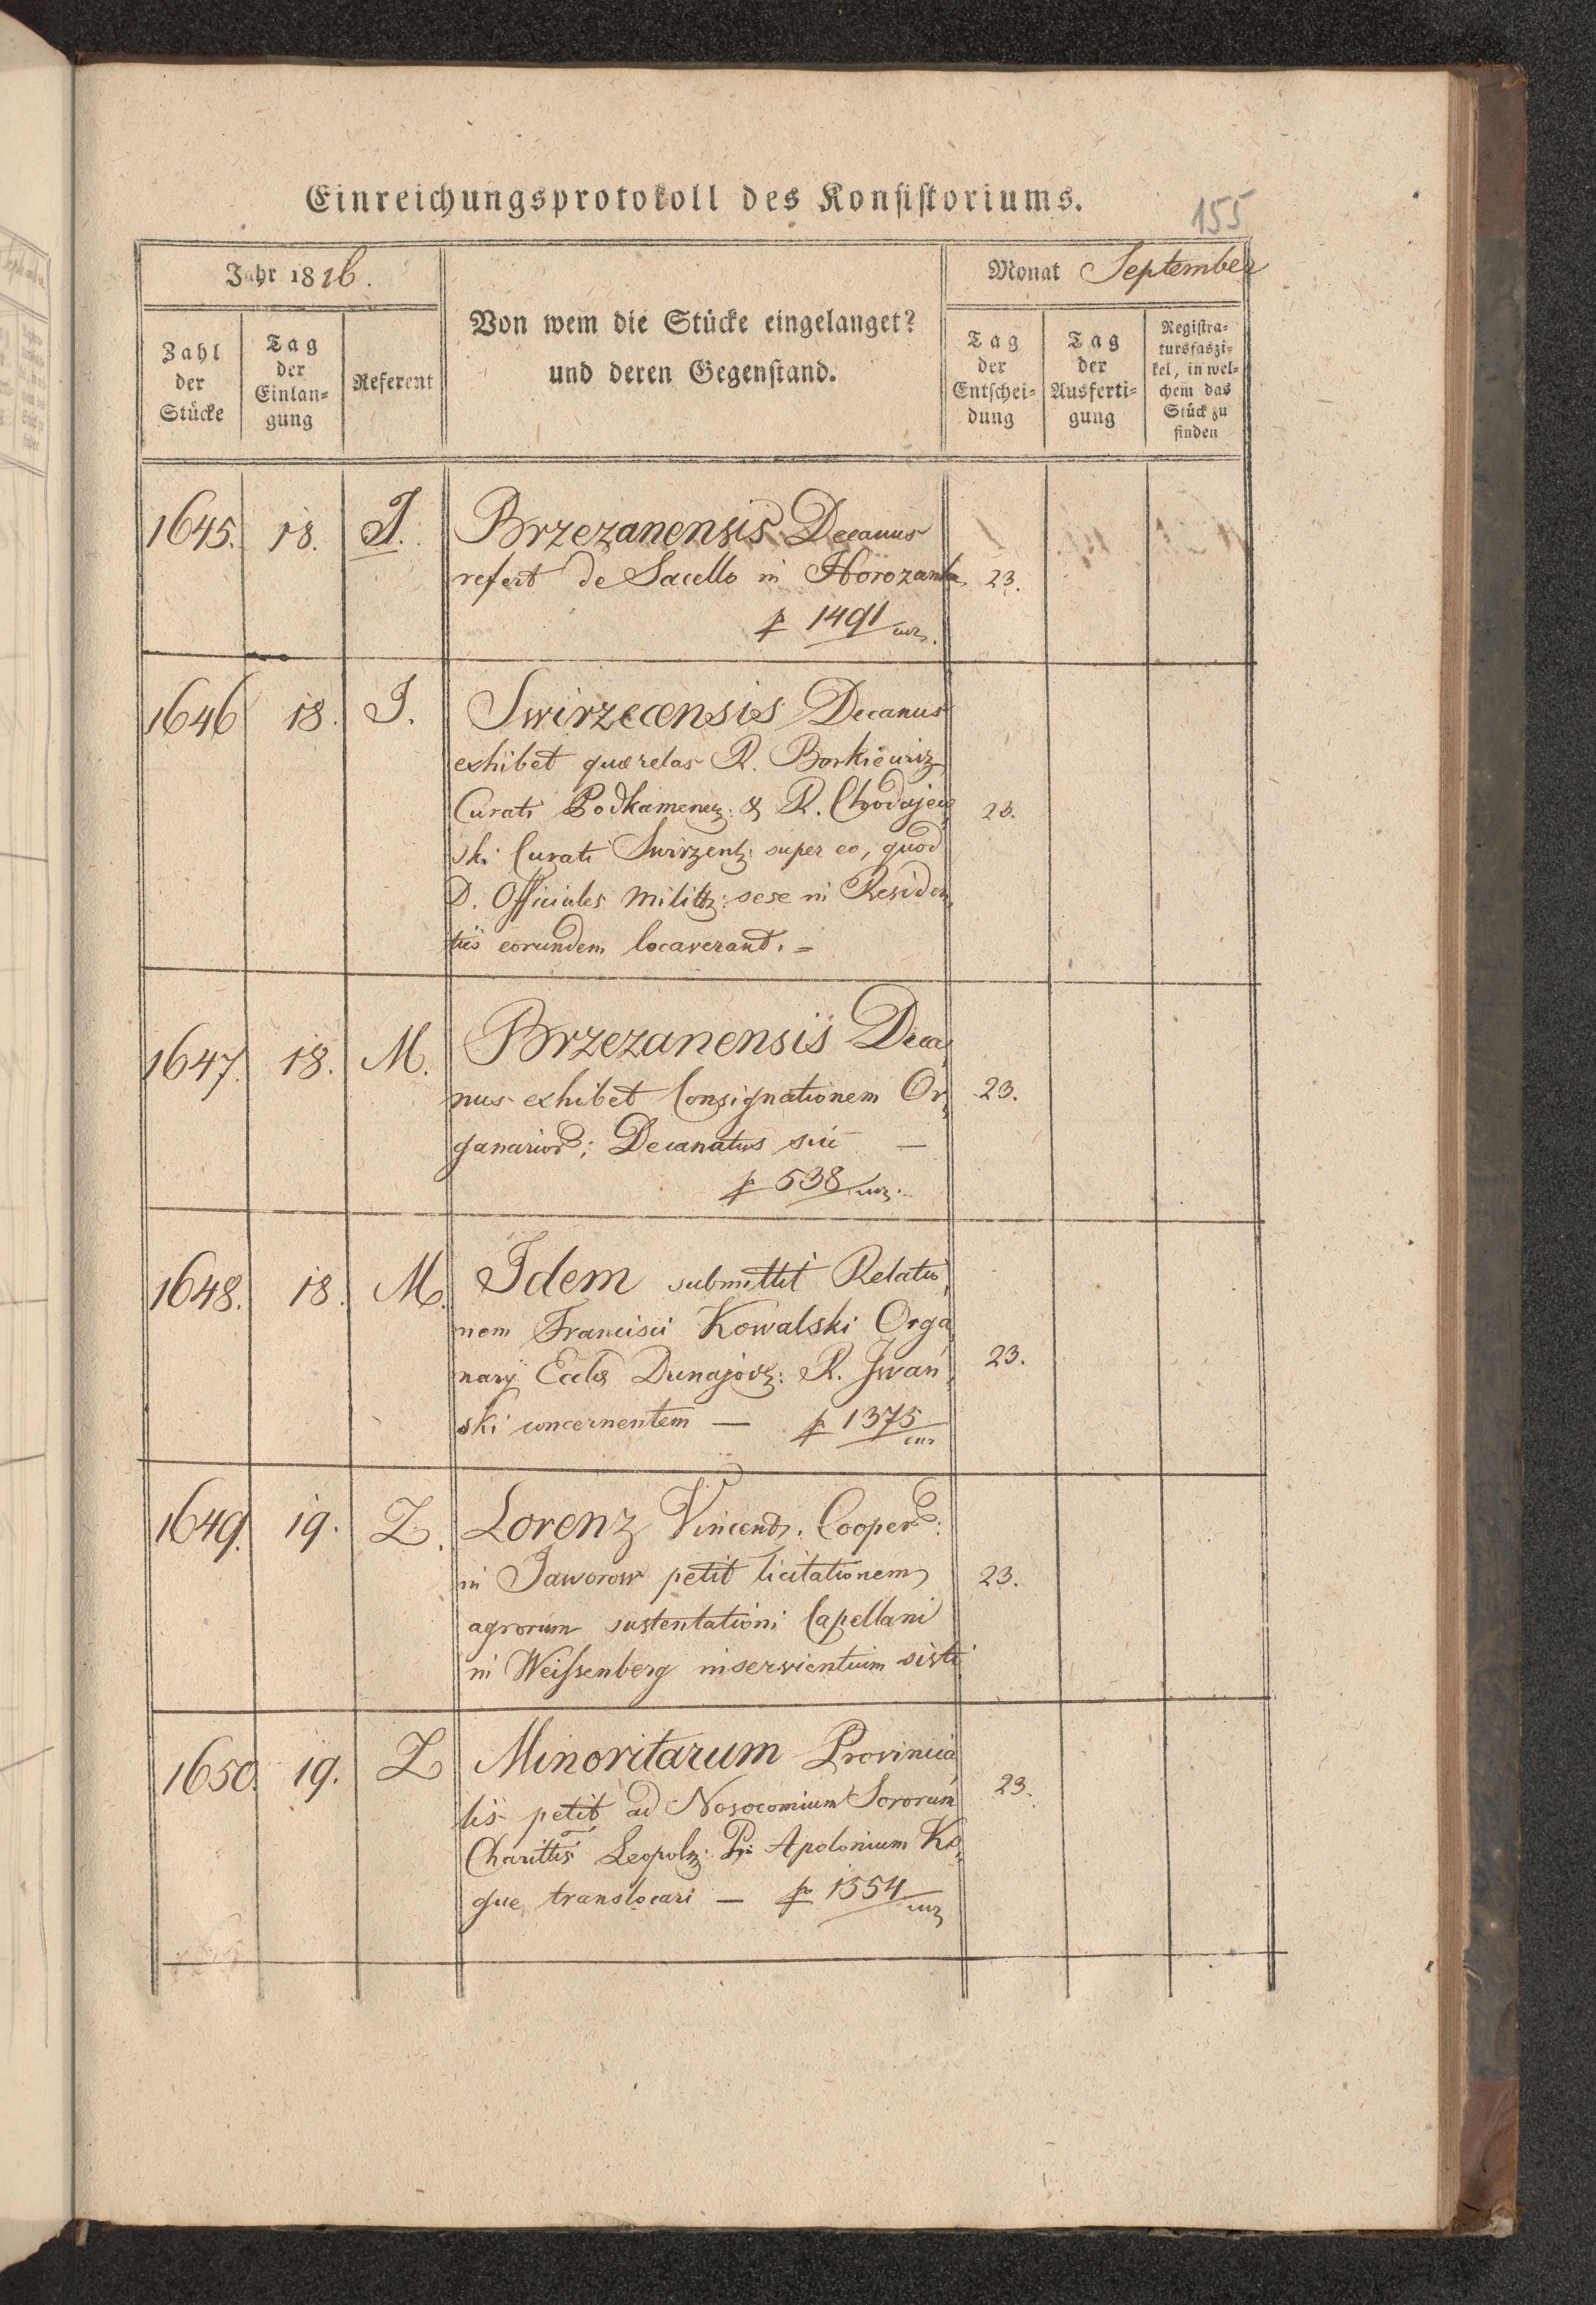 Einreichungsprotokoll des Konsistoriums.
155
Jahr 1816.
Monat September
Von wem die Stücke eingelanget?
und deren Gegenstand.
Zahl
der
Stücke
Tag
der
Einlan-
gung
Referent
Tag
der
Entschei-
dung
Tag
der
Ausferti-
gung
Registra-
tursfaszi-
kel, in wel-
chem das
Stück zu
finden
1645. 18. J. Brzezanensis Decanus
refert de Sacello in Horozanka 23.
p 1491
1646 18. J. Swirzecensis Decanus
exhibet quærelas R. Borkiewicz
Curati Podkamenez: & R. Chodajew, 23.
ski Curati Swirzenz: super eo, quod
D. Officiales militz: sese in Residen,
tiis eorundem locaverant. =
1647. 18. M. Brzezanensis Deca,
nus exhibet Consignationem Or, 23.
ganarior; Decanatus sui —
p 538
1648. 18. M. Idem submittit Relatio,
nem Francisci Kowalski Orga,
narÿ Eccles Dunajovz: R. Iwan, 23.
ski concernentem — p 1375
1649. 19. Z. Lorenz Vincenz. Cooper:
in Jaworow petit licitationem 23.
agrorum sustentationi Capellani
in Weissenberg inservientium sisti
1650. 19. Z Minoritarum Provincia,
lis petit ad Nosocomium Sororum 23.
Charittis Leopolz: P. Apolonium Ko,
gue translocari — p 1554